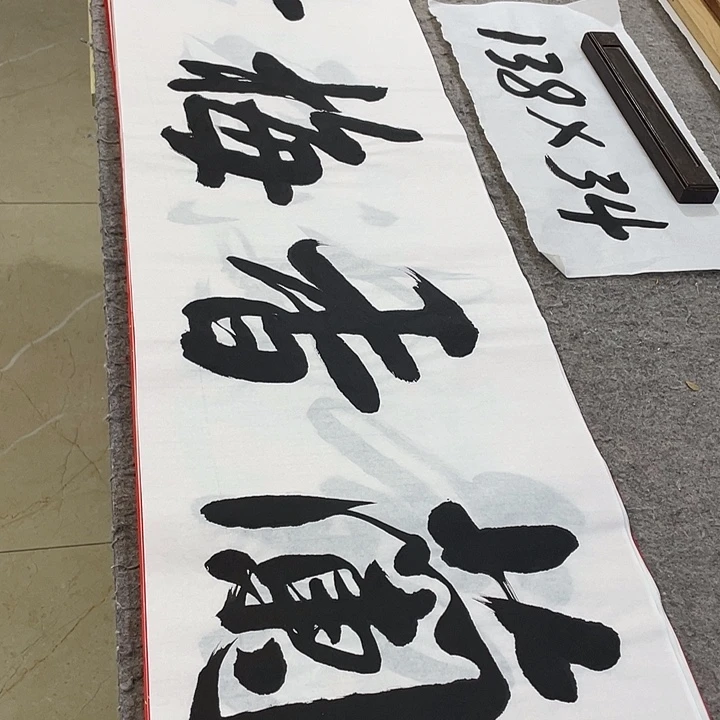 蘭香梅
138×34